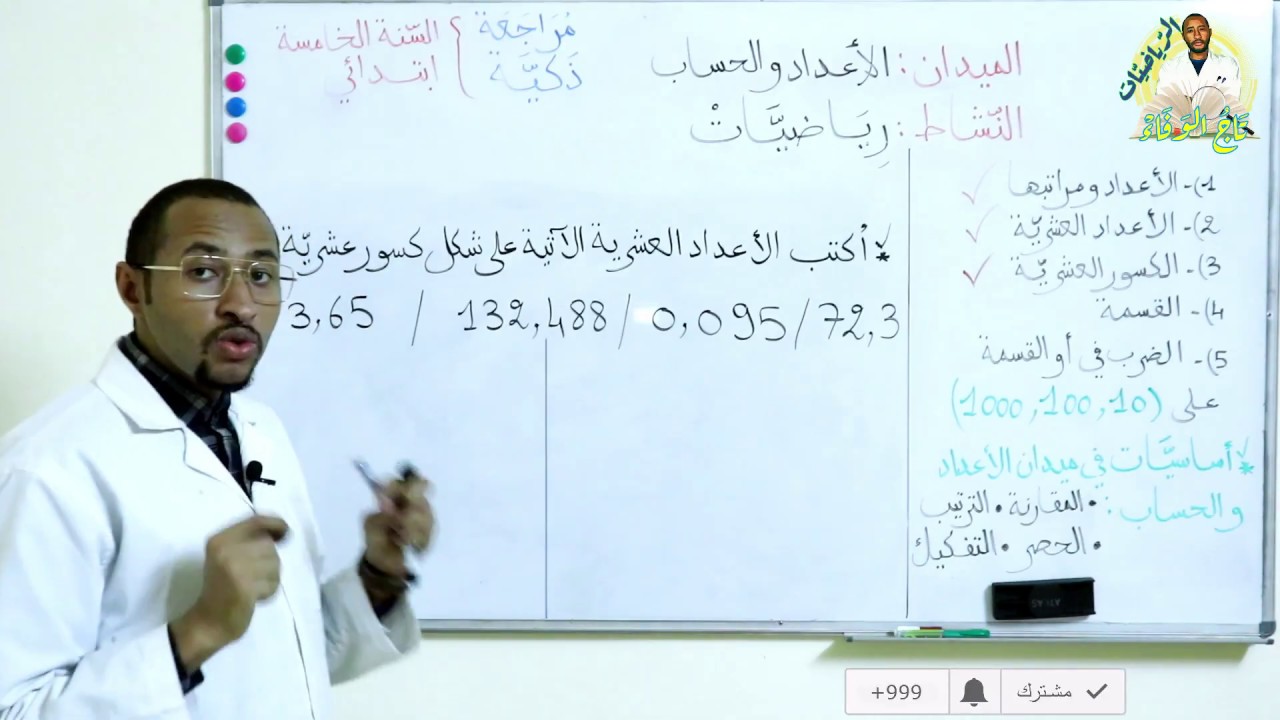 مُرَاجَعَة
ذَكيَّة
السّنة الخامسة
ابتدائي
الميدان: الأعداد والحساب
النّشاط: رِيَاضيَّاتْ
الرّياضيّات
تَاجُ الوَفَاءْ
1)- الأعداد ومراتبها ✓
2)- الأعداد العشريّة ✓
3)- الكسور العشريّة ✓
4)- القسمة
5)- الضرب في أو القسمة
على (1000,100,10)
* أساسيَّات في ميدان الأعداد
والحساب: • المقارنة • الترتيب
• الحصر • التفكيك
* أكتب الأعداد العشرية الآتية على شكل كسور عشريّة
3,65 / 132,488 / 0,095 / 72,3
+999
مشترك